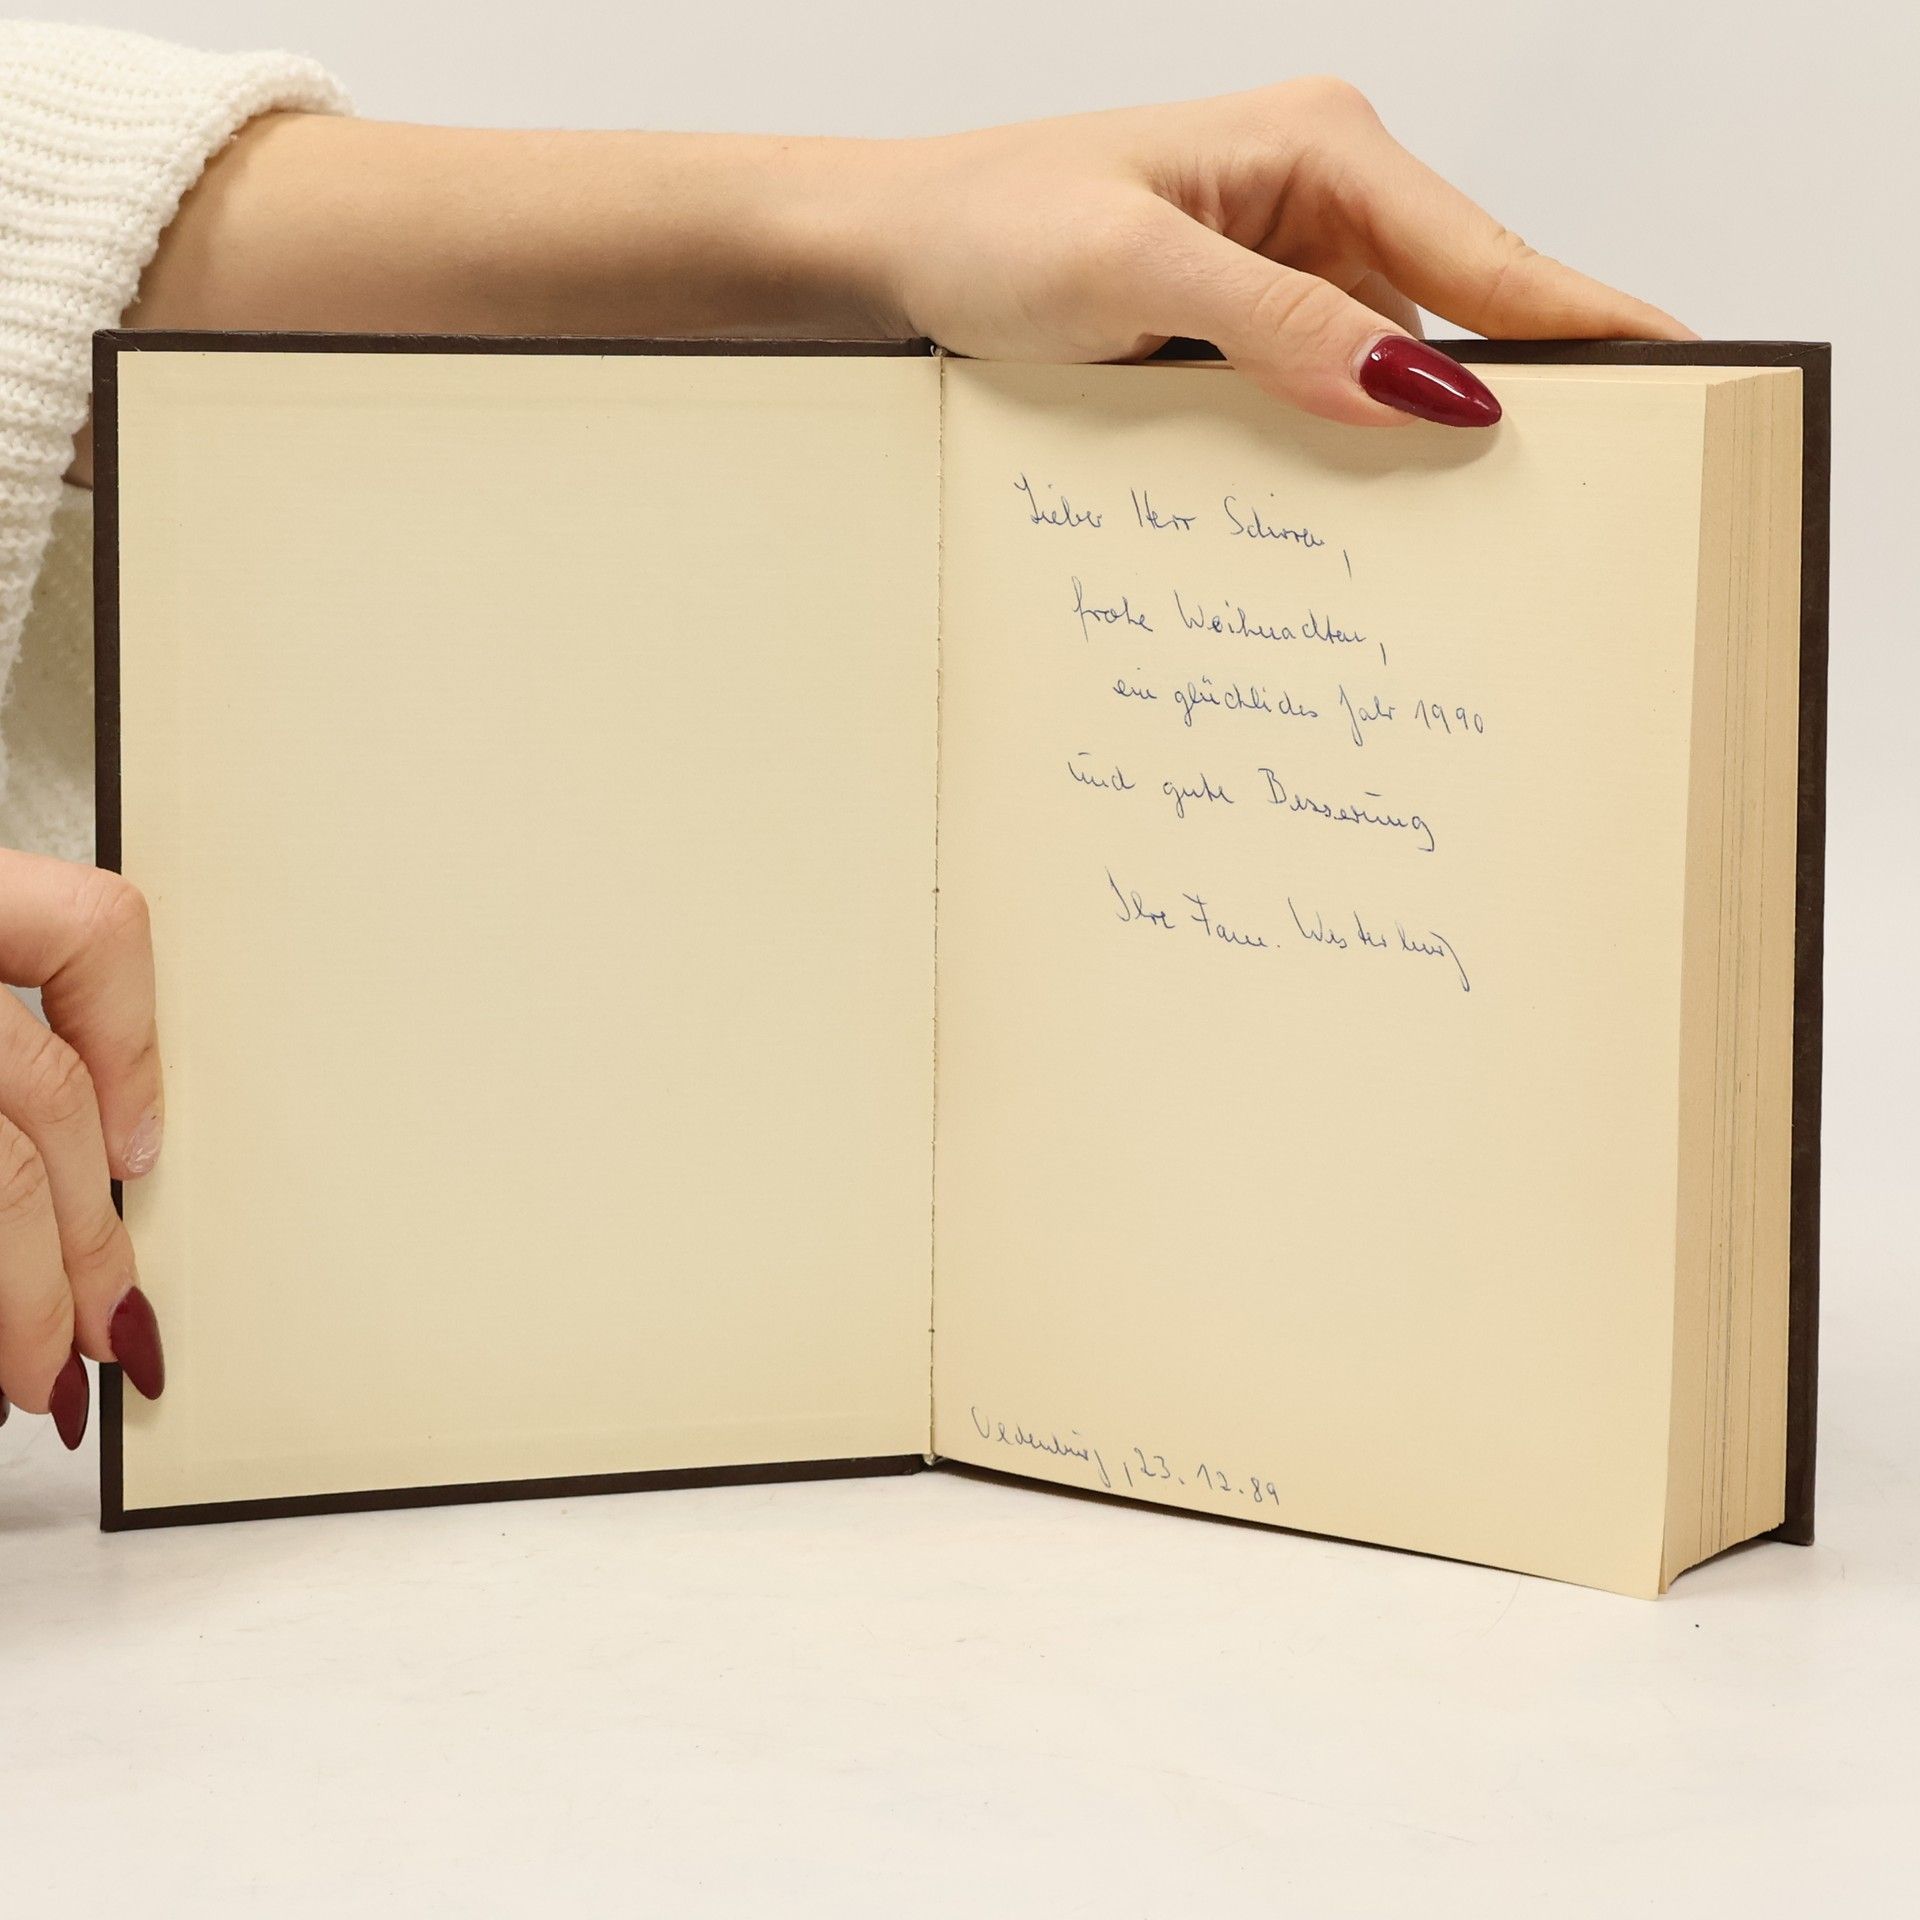 Lieber Herr Schirren,
frohe Weihnachten,
ein glückliches Jahr 1990
und gute Besserung
Ihre Fam. Westerburg
Oldenburg, 23.12.89